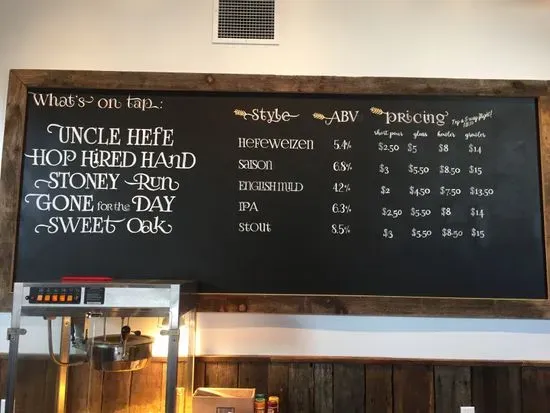 What's on tap:
Style ABV Pricing
short pour glass howler growler
UNCLE HEFE HEFEWEIZEN 5.4% $2.50 $5 $8 $14
HOP HIRED HAND SAISON 6.8% $3 $5.50 $8.50 $15
STONEY Run ENGLISH MILD 4.2% $2 $4.50 $7.50 $13.50
GONE for the DAY IPA 6.3% $2.50 $5.50 $8 $14
SWEET Oak STOUT 8.5% $3 $5.50 $8.50 $15